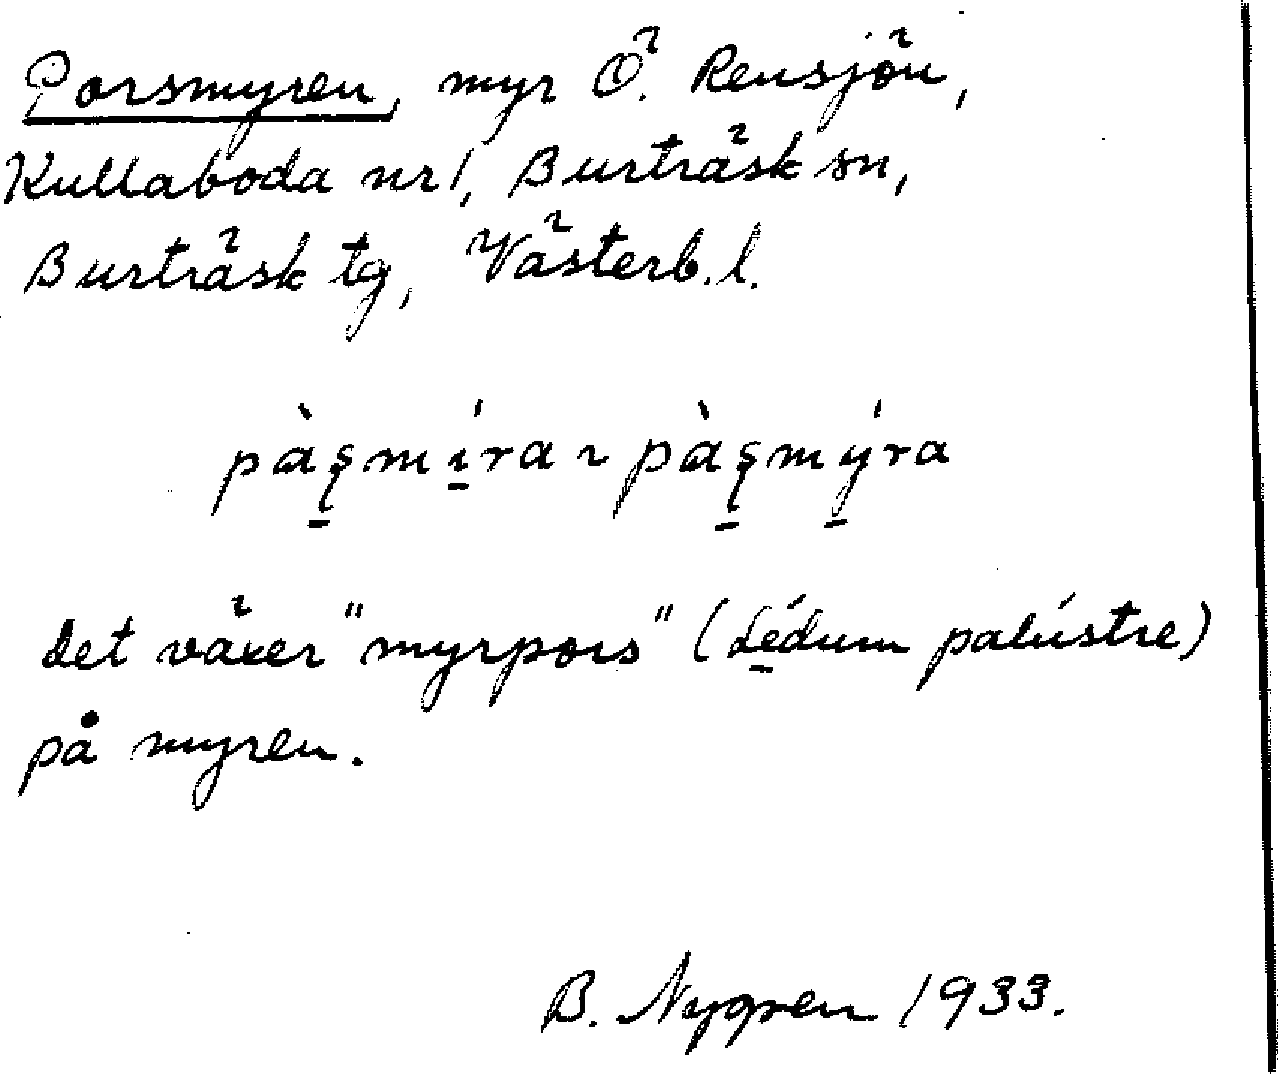 Porsmyren, myr Ö. Rensjön,
Kullaboda nr 1, Burträsk sn,
Burträsk tg, Västerb. l.
pàşmíra ~ pàşmýra
det växer "myrpors" (Lédum palústre)
på myren.
B. Nygren 1933.